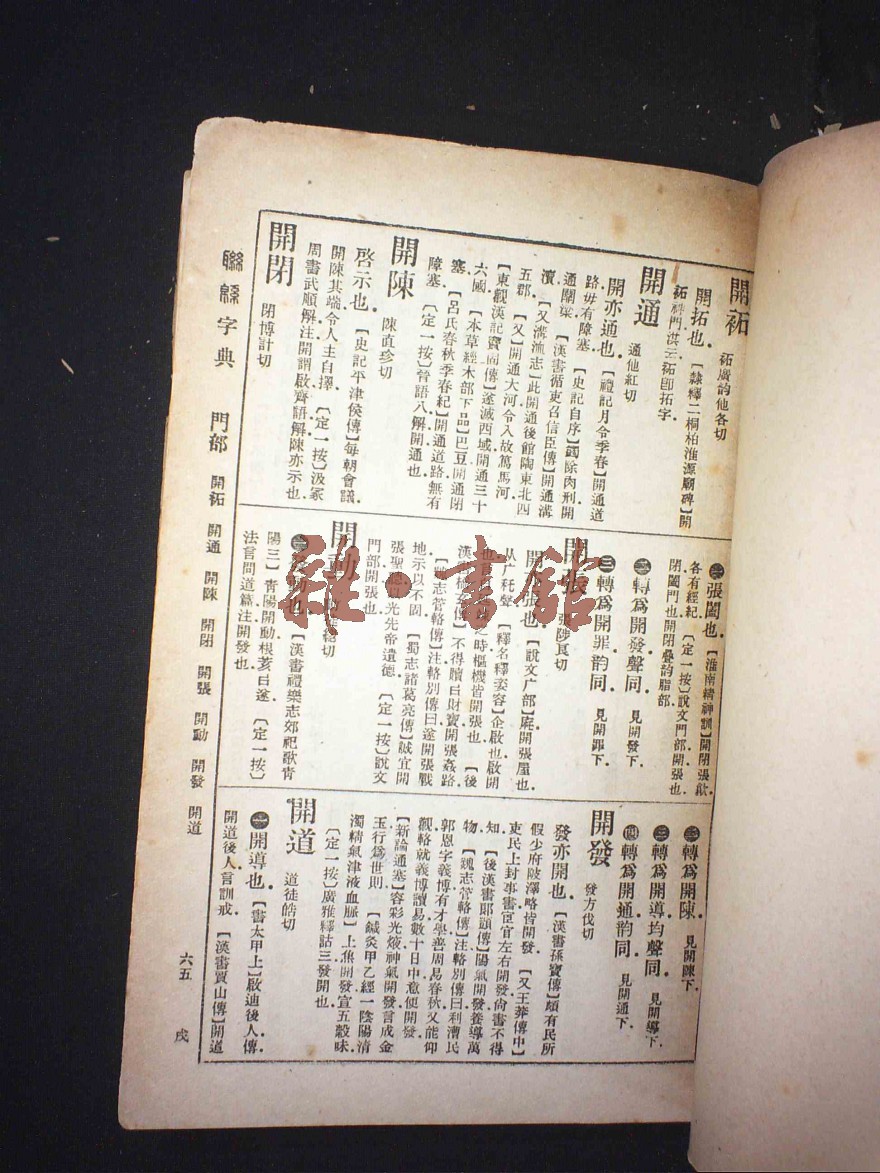 開祏
祏廣韵他各切
開拓也．【隸釋二桐柏淮源廟碑】開
祏神門．洪云祏卽拓字．
開通
通他紅切
開亦通也．【禮記月令季春】開通道
路毋有障塞．【史記自序】蠲除肉刑開
通關梁．【漢書循吏召信臣傳】開通溝
瀆．【又溝洫志】此開通後館陶東北四
五郡．【又】開通大河令入故篤馬河．
【東觀漢記竇固傳】遂滅西域開通三十
六國．【本草經木部下品】巴豆開通閉
塞．【呂氏春秋季春紀】開通道路無有
障塞．【定一按】晉語八解開通也．
開陳
陳直珍切
啓示也．【史記平津侯傳】每朝會議．
開陳其端令人主自擇．【定一按】汲冢
周書武順解注開謂啟齊語解陳亦示也．
開閉
閉博計切
㊀張闔也．【淮南精神訓】開閉張歙．
各有經紀．【定一按】說文門部開張也．
閉闔門也開閉疊韵脂部．
㊁轉爲開發聲同．見開發下．
㊂轉爲開罪韵同．見開罪下．
開張
張陟良切
開亦張也．【說文广部】㡯開張屋也．
从广秅聲．【釋名釋姿容】企啟也啟開
也言自延竦之時樞機皆開張也．【後
漢書橋玄傳】不得贖曰財寶開張姦路．
【魏志管輅傳】注輅別傳曰遂開張戰
地示以不固．【蜀志諸葛亮傳】誠宜開
張聖聽曰光先帝遺德．【定一按】說文
門部開張也．
開動
切
發動也．【漢書禮樂志郊祀歌青
陽三】青陽開動根荄曰遂．【定一按】
法言問道篇注開發也．
㊁轉爲開陳．見開陳下．
㊂轉爲開導均聲同．見開導下．
㊃轉爲開通韵同．見開通下．
開發
發方伐切
發亦開也．【漢書孫寶傳】頗有民所
假少府陂澤略皆開發．【又王莽傳中】
吏民上封事書宦官左右開發尙書不得
知．【後漢書郎顗傳】陽氣開發養導萬
物．【魏志管輅傳】注輅別傳曰利漕民
郭恩字義博有才學善周易春秋又能仰
觀輅就義博讀易數十日中意便開發．
【新論通塞】容彩光㷡神氣開發言成金
玉行爲世則．【鍼灸甲乙經一陰陽清
濁精氣津液血脈】上焦開發宣五穀味．
【定一按】廣雅釋詁三發開也．
開道
道徒皓切
㊀開導也．【書太甲上】啟迪後人傳
開道後人言訓戒．【漢書賈山傳】開道
聯緜字典　門部　開祏　開通　開陳　開閉　開張　開動　開發　開道　六五　戌
雜·書館